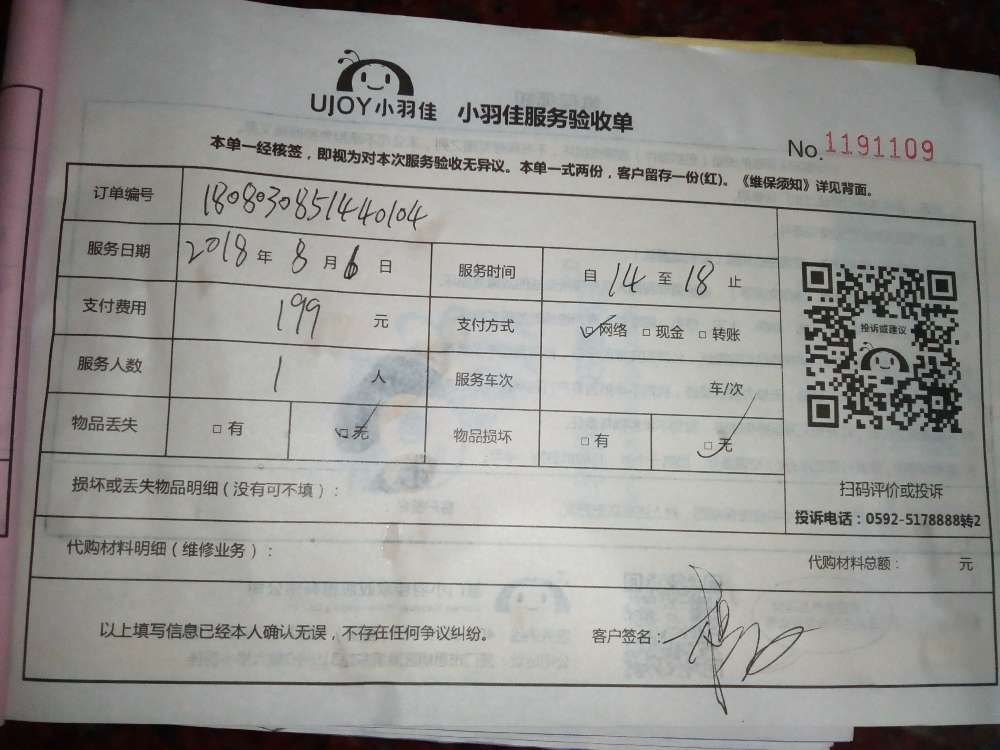 UJOY小羽佳 小羽佳服务验收单
No.1191109
本单一经核签，即视为对本次服务验收无异议。本单一式两份，客户留存一份(红)。《维保须知》详见背面。
订单编号 1808030851440104
服务日期 2018年8月6日 服务时间 自14至18止
支付费用 199元 支付方式 ☑网络 □现金 □转账
服务人数 1人 服务车次 车/次
物品丢失 □有 ☑无 物品损坏 □有 ☑无
投诉或建议
扫码评价或投诉
投诉电话：0592-5178888转2
损坏或丢失物品明细（没有可不填）：
代购材料明细（维修业务）： 代购材料总额： 元
以上填写信息已经本人确认无误，不存在任何争议纠纷。 客户签名：